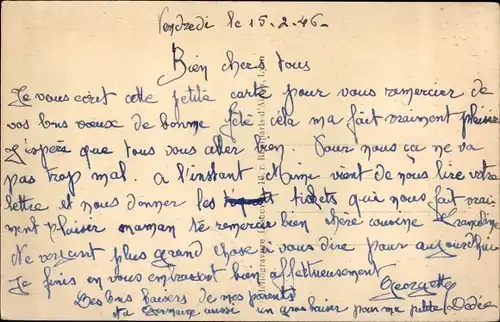 Vendredi le 15-2-46-
Bien chers tous
Je vous ecrit cette petite carte pour vous remercier de
vos bons vœux de bonne fête cela ma fait vraiment plaisir
J'espère que tous vous aller bien. Pour nous ca ne va
pas trop mal. a l'instant Mimi vient de nous lire votre
lettre et nous donner les tickets qui nous fait vrai-
ment plaisir maman te remercie bien chère cousine
Ne voyant plus grand chose à vous dire pour aujourd'hui
Je finis en vous embrassant bien affectueusement
Georgette
Des bons baisers de mes parents
aussi un gros baiser pour ma petite Dédée